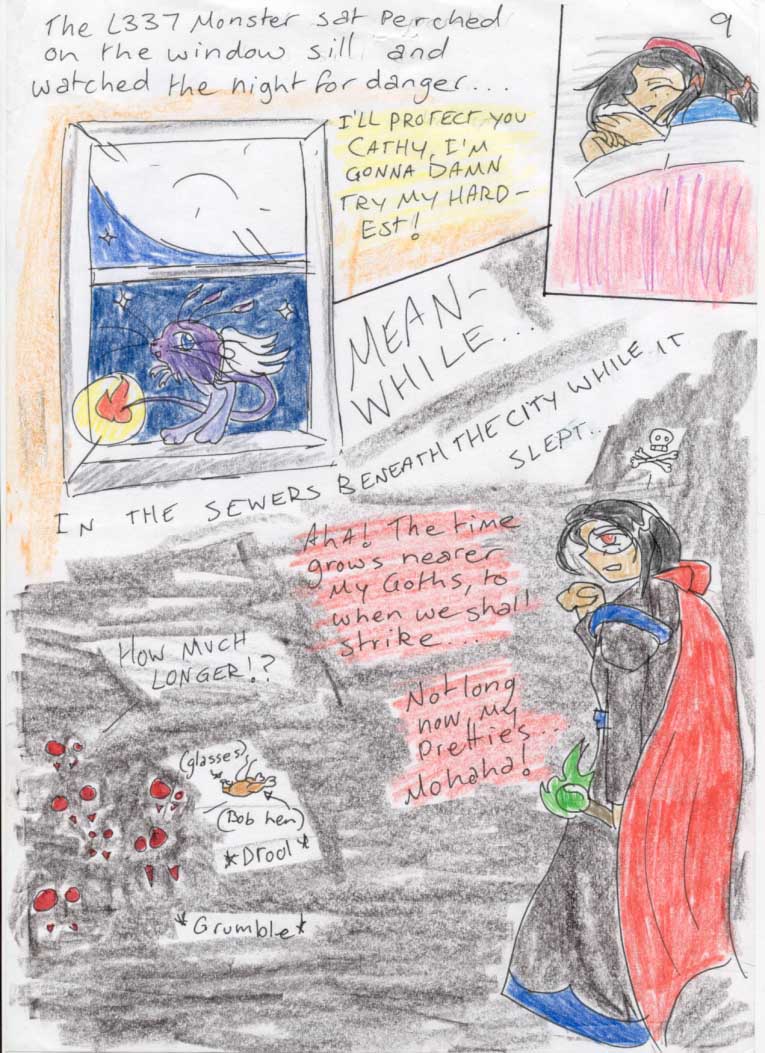 The L337 Monster sat perched
on the window sill and
watched the night for danger...
9
I'LL PROTECT YOU
CATHY, I'M
GONNA DAMN
TRY MY HARD-
EST!
MEAN-
WHILE...
IN THE SEWERS BENEATH THE CITY WHILE IT
SLEPT..
AHA! The time
grows nearer
My Goths, to
when we shall
strike...
HOW MUCH
LONGER!?
Not long
now my
Pretties...
Mohaha!
(glasses)
(Bob hen)
*Drool*
*Grumble*